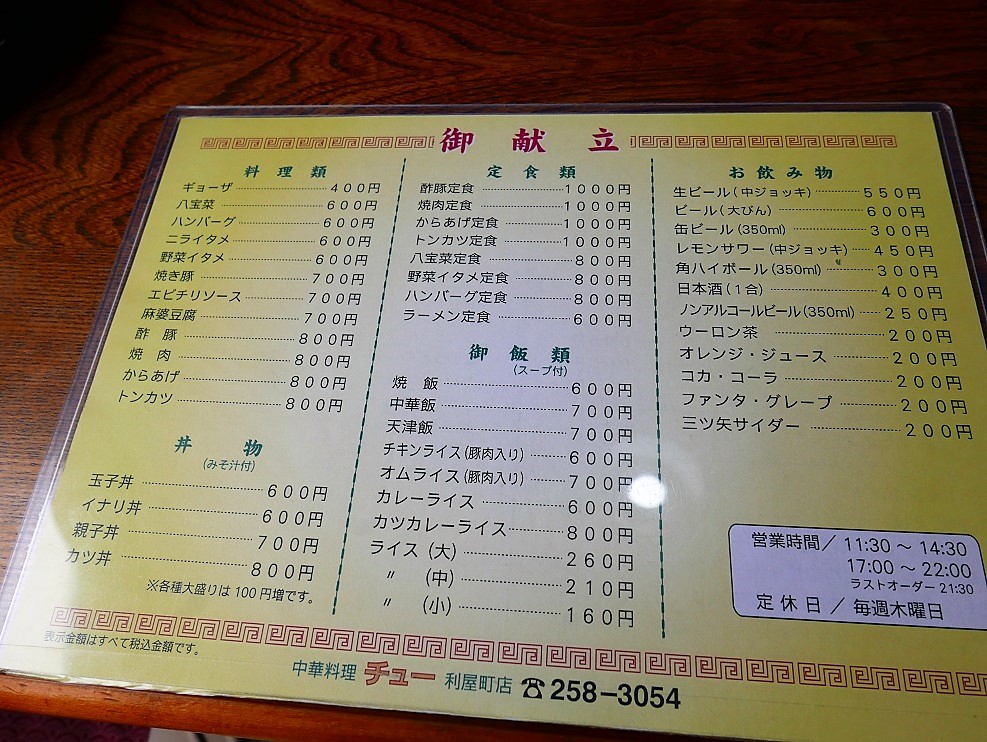 御献立
料理類
ギョーザ 400円
八宝菜 600円
ハンバーグ 600円
ニライタメ 600円
野菜イタメ 600円
焼き豚 700円
エビチリソース 700円
麻婆豆腐 700円
酢豚 800円
焼肉 800円
からあげ 800円
トンカツ 800円
丼物
(みそ汁付)
玉子丼 600円
イナリ丼 600円
親子丼 700円
カツ丼 800円
※各種大盛りは100円増です。
定食類
酢豚定食 1000円
焼肉定食 1000円
からあげ定食 1000円
トンカツ定食 1000円
八宝菜定食 800円
野菜イタメ定食 800円
ハンバーグ定食 800円
ラーメン定食 600円
御飯類
(スープ付)
焼飯 600円
中華飯 700円
天津飯 700円
チキンライス(豚肉入り) 600円
オムライス(豚肉入り) 700円
カレーライス 600円
カツカレーライス 800円
ライス(大) 260円
〃 (中) 210円
〃 (小) 160円
お飲み物
生ビール(中ジョッキ) 550円
ビール(大びん) 600円
缶ビール(350ml) 300円
レモンサワー(中ジョッキ) 450円
角ハイボール(350ml) 300円
日本酒(1合) 400円
ノンアルコールビール(350ml) 250円
ウーロン茶 200円
オレンジ・ジュース 200円
コカ・コーラ 200円
ファンタ・グレープ 200円
三ツ矢サイダー 200円
営業時間/11:30〜14:30
17:00〜22:00
ラストオーダー21:30
定休日/毎週木曜日
表示金額はすべて税込金額です。
中華料理 チュー 利屋町店 ☎258-3054